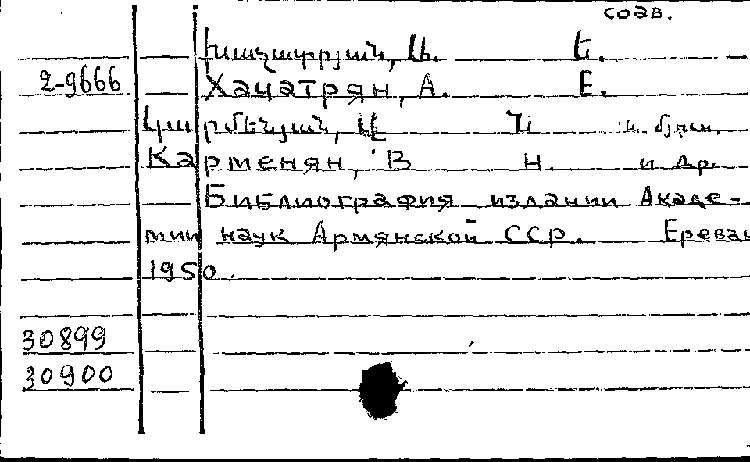 соав.
Խաչատրյան, Ա. Ե.
2-9666 Хачатрян, А. Е.
Կարմենյան, Վ Ն և մյուս.
Карменян, В Н. и др.
Библиография издании Акаде-
мии наук Армянской ССР. Ереван
1950.
30899
30900